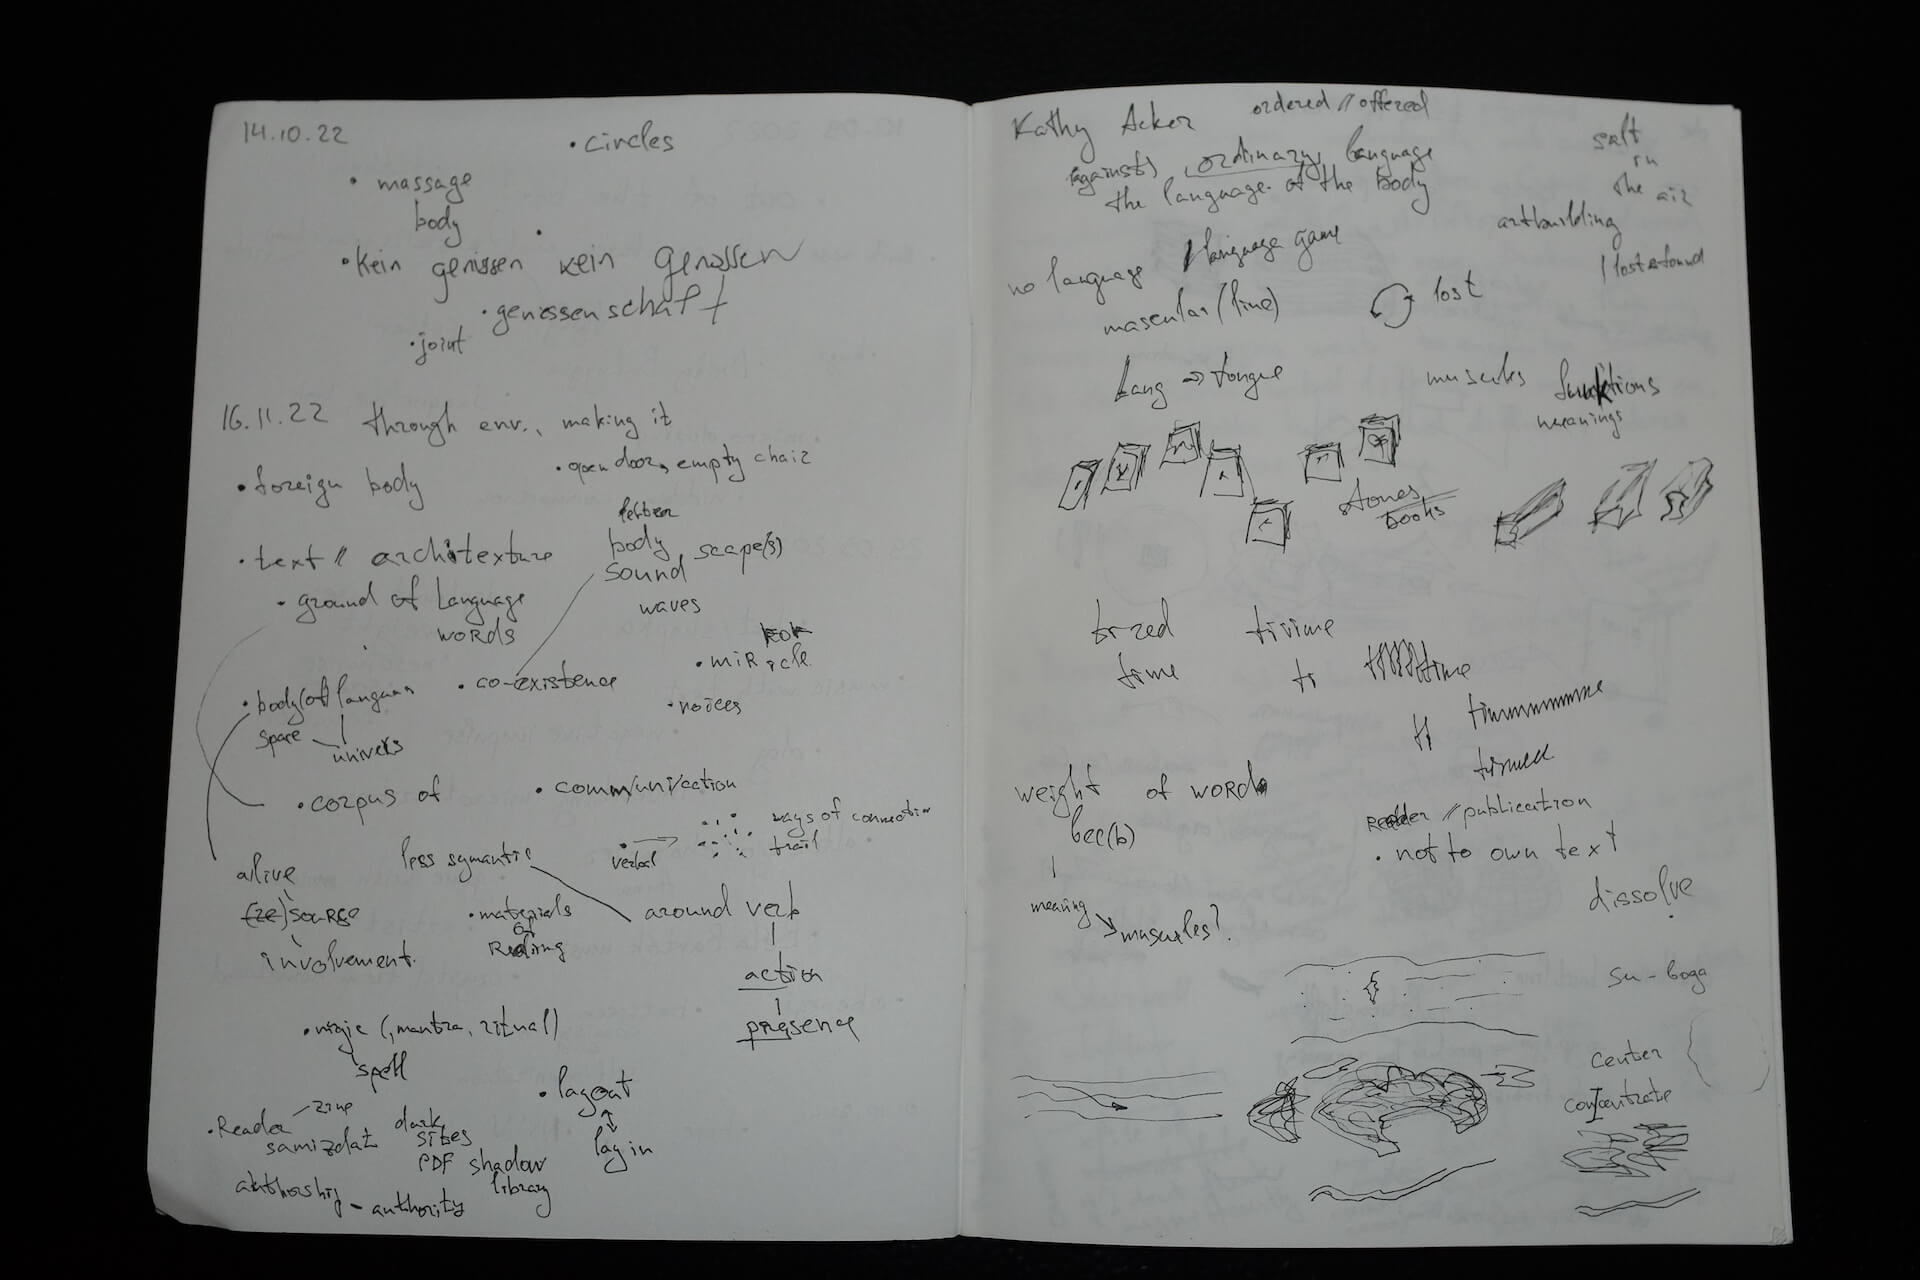 14.10.22
• circles
• massage
body
• Kein genissen kein Genossen
• genossenschaft
• joint
16.11.22 through env., making it
• open door, empty chair
• foreign body
body scape(s)
sound
waves
• text // architexture
• ground of language
words
• miRacle
• co-existence
• voices
• body(of)
space
univers
• corpus of
• comm/uni/cation
ways of connection
trail
verbal
alive
less symantic
(re)source
• materials
of
Reading
around verb
involvement.
action
presence
(, mantra, ritual)
spell
• layout
lay in
• Reader
zine
samizdat
dark
sites
PDF shadow
library
authorship - authority
Kathy Acker
ordered // offered
(against) ordinary language
the language of the body
salt
in
the air
artbuilding
/ lost & found
no language / language game
lost
Lang => tongue
muscles funktions
meanings
stones
books
time
ti
weight of words
meaning
muscles?
Reader // publication
• not to own text
dissolve
center
concentrate